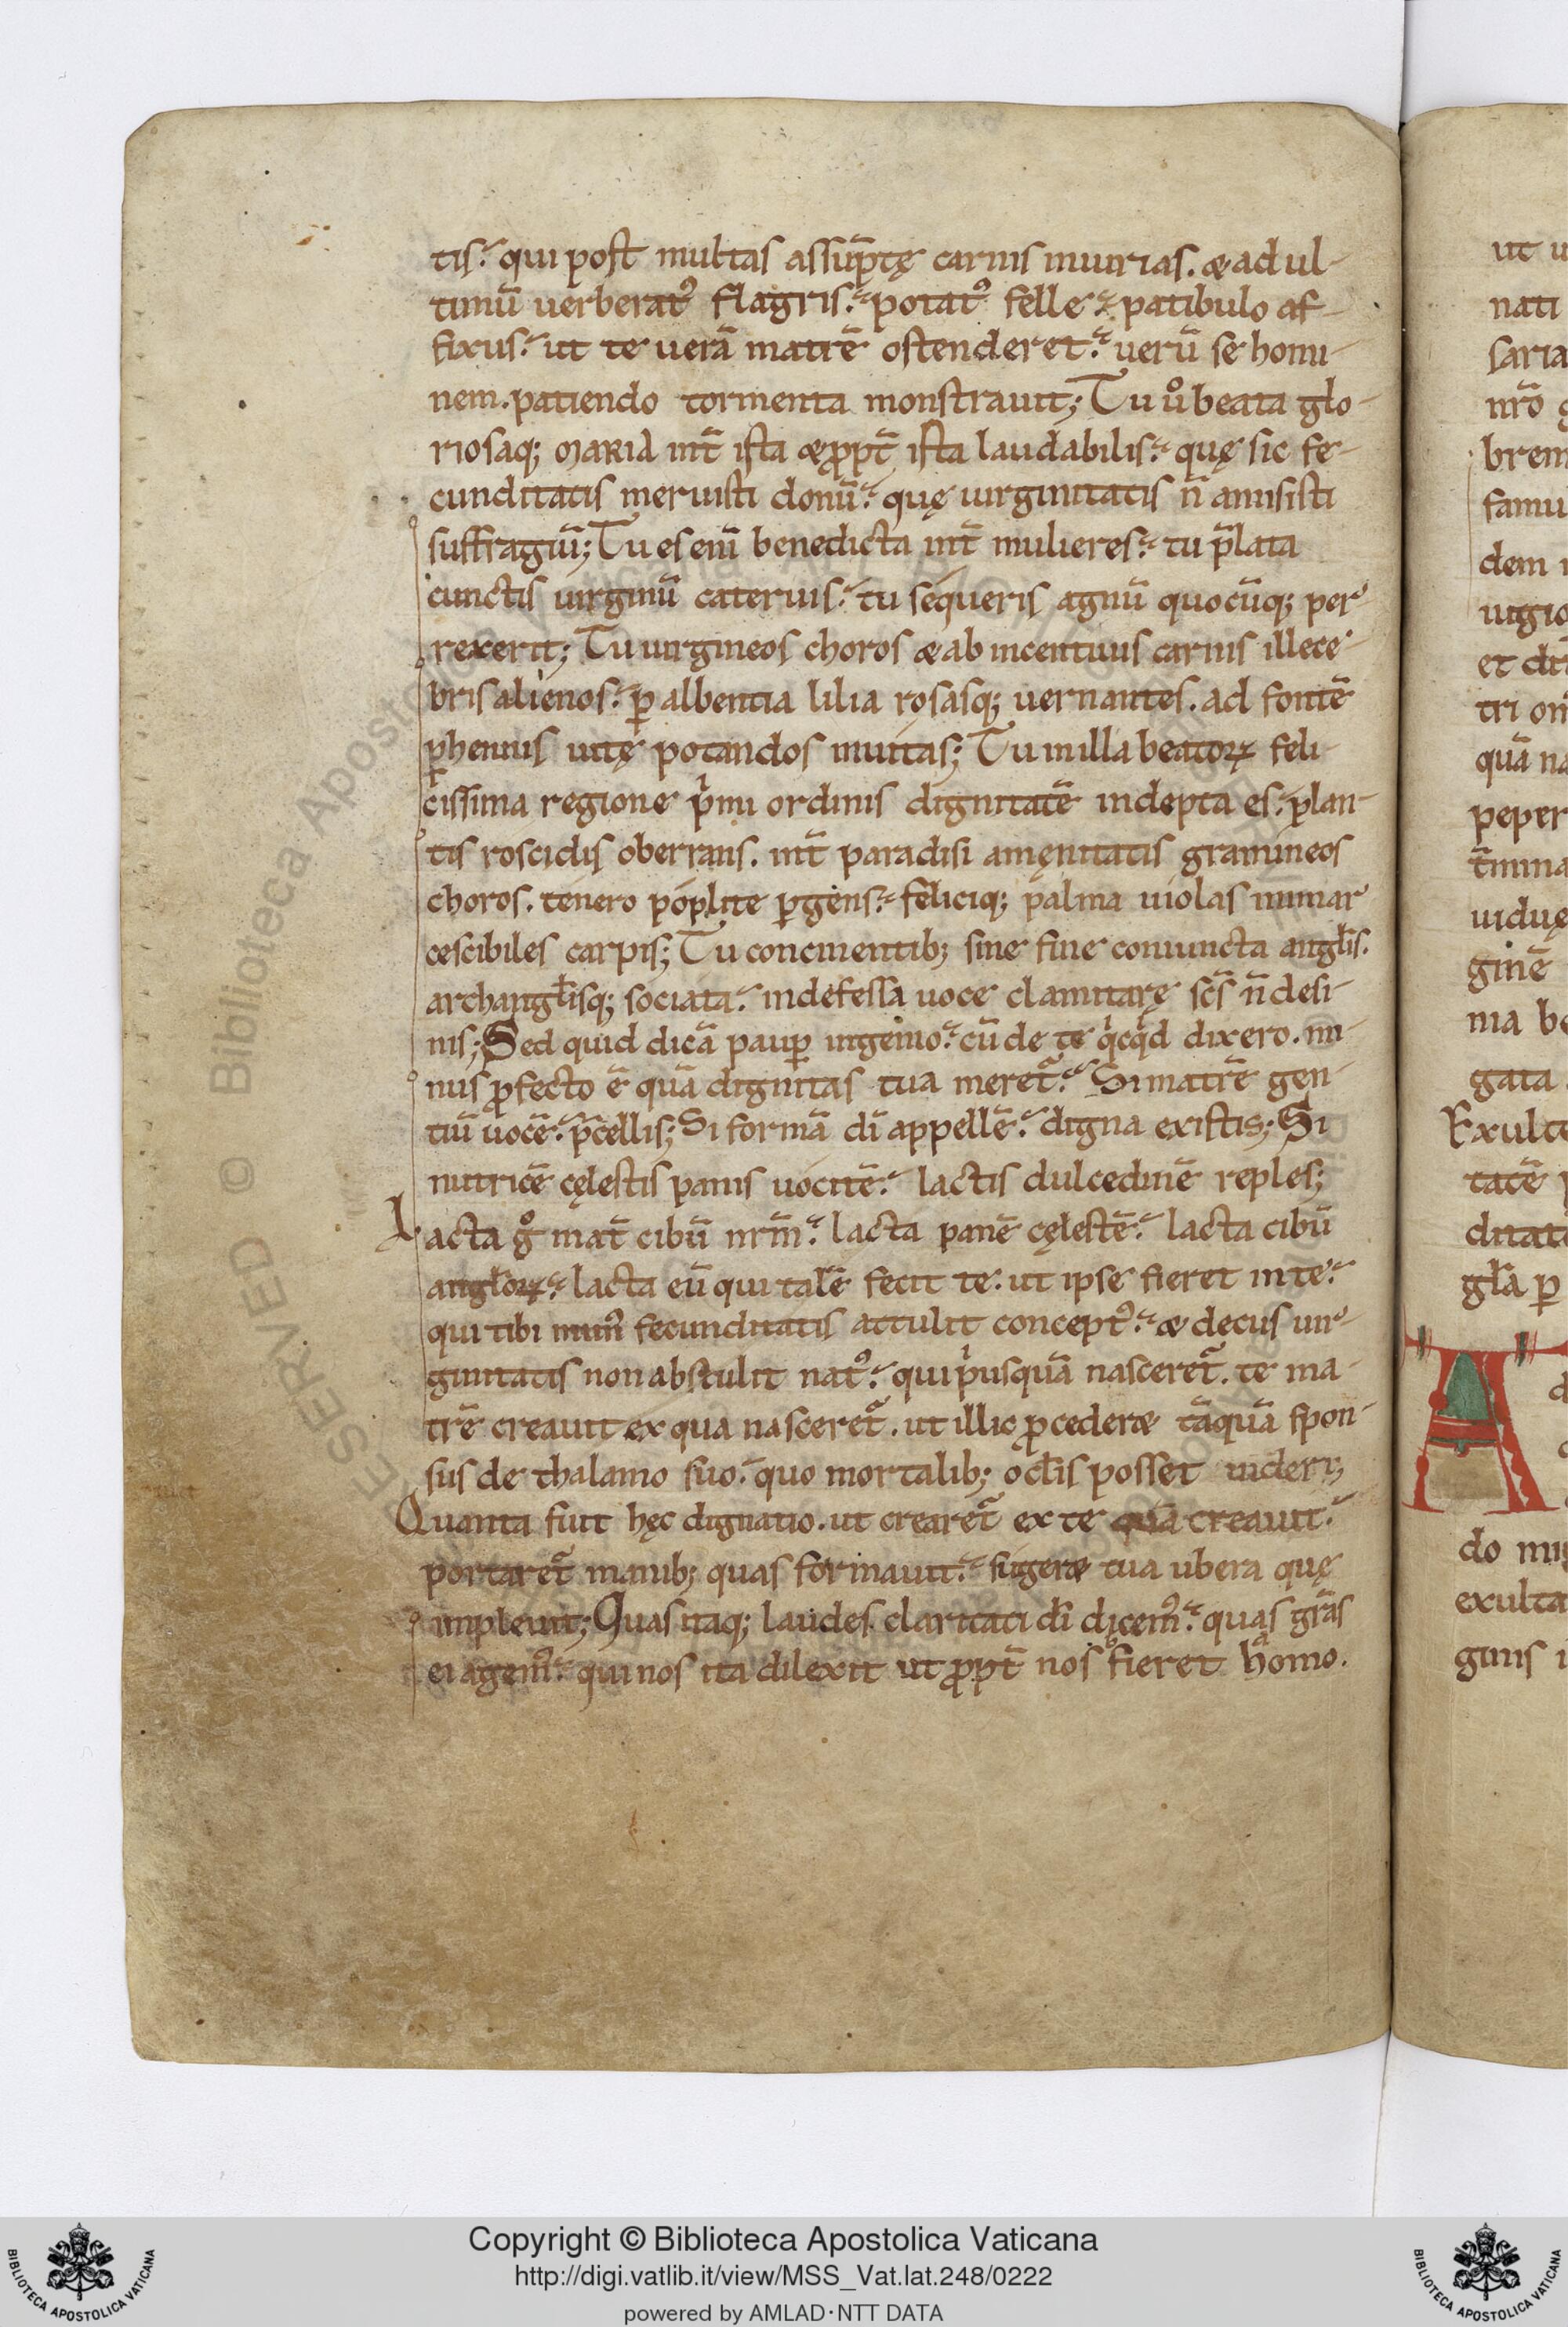 tis. qui post multas assūptę carnis iniurias. & ad ul-
timū uerberat᷒ flagris. potat᷒ felle. patibulo af-
fixus. ut te uerā matrē ostenderet. uerū se homi-
nem. patiendo tormenta monstrauit; Tu uͦ beata glo-
riosaq; MARIA int̄ ista & ꝓpt̄ ista laudabilis. quę sic fe-
cunditatis meruisti donū. quę uirginitatis n̄ amisisti
suffragiū; Tu es eni̅ benedicta int̄ mulieres. tu p̄lata
cunctis uirginū cateruis. tu sequeris agnū quocūq; per
rexerit; Tu uirgineos choros & ab incentiuis carnis illece-
bris alienos. ꝑ albentia lilia rosasq; uernantes. ad fontē
ꝑhennis uitę potandos inuitas; Tu in illa beatoꝝ feli-
cissima regione pͥmi ordinis dignitatē indepta es. plan-
tis roscidis oberrans. int̄ paradisi amęnitatis gramineos
choros. tenero poplite ꝑgens. feliciq; palma uiolas inmar
cescibiles carpis; Tu concinentib; sine fine coniuncta angł̄is.
archangł̄isq; sociata. indefessa uoce clamitarę sc̄s n̄ desi-
nis; Sed quid dicā pauꝑ ingenio. cū de te qͥcqͥd dixero. mi-
nus ꝓfecto ē quā dignitas tua meret᷑. Si matrē gen-
tiū uocē. p̄cellis; Si formā dī appellē. digna existis; Si
nutricē cęlestis panis uocitē. lactis dulcedinē reples;
Lacta gͦ mat̄ cibū nrm̄. lacta panē cęlestē. lacta cibū
angł̄oꝝ. lacta eū qui talē fecit te. ut ipse fieret in te.
qui tibi mun᷒ fecunditatis attulit concept᷒. & decus uir-
ginitatis non abstulit nat᷒. qui pͥusquā nasceret᷑. te ma-
trē creauit ex qua nasceret᷑. ut illic ꝓceder& tāquā spon-
sus de thalamo suo. quo mortalib; ocł̄is posset uideri;
Quanta fuit hęc dignatio. ut crearet᷑ ex te quā creauit.
portaret᷑ manib; quas formauit. suger& tua ubera quę
impleuit; Quas itaq; laudes claritati dī dicem᷒. quas grās
ei agem᷒. qui nos ita dilexit ut ꝓpt̄ nos fieret homo.
ut u
nati
saria
nr̄o
brem
famu
dem
uigio
et
tri om
quā na
peper
t̄mina
uiduę
ginē
ma be
gata
Exult
tatē
ditat
gł̄a ꝑ
A
do mi
exulta
ginis i
Copyright © Biblioteca Apostolica Vaticana
http://digi.vatlib.it/view/MSS_Vat.lat.248/0222
powered by AMLAD·NTT DATA
BIBLIOTECA APOSTOLICA VATICANA
BIBLIOTECA APOSTOLICA VATICANA